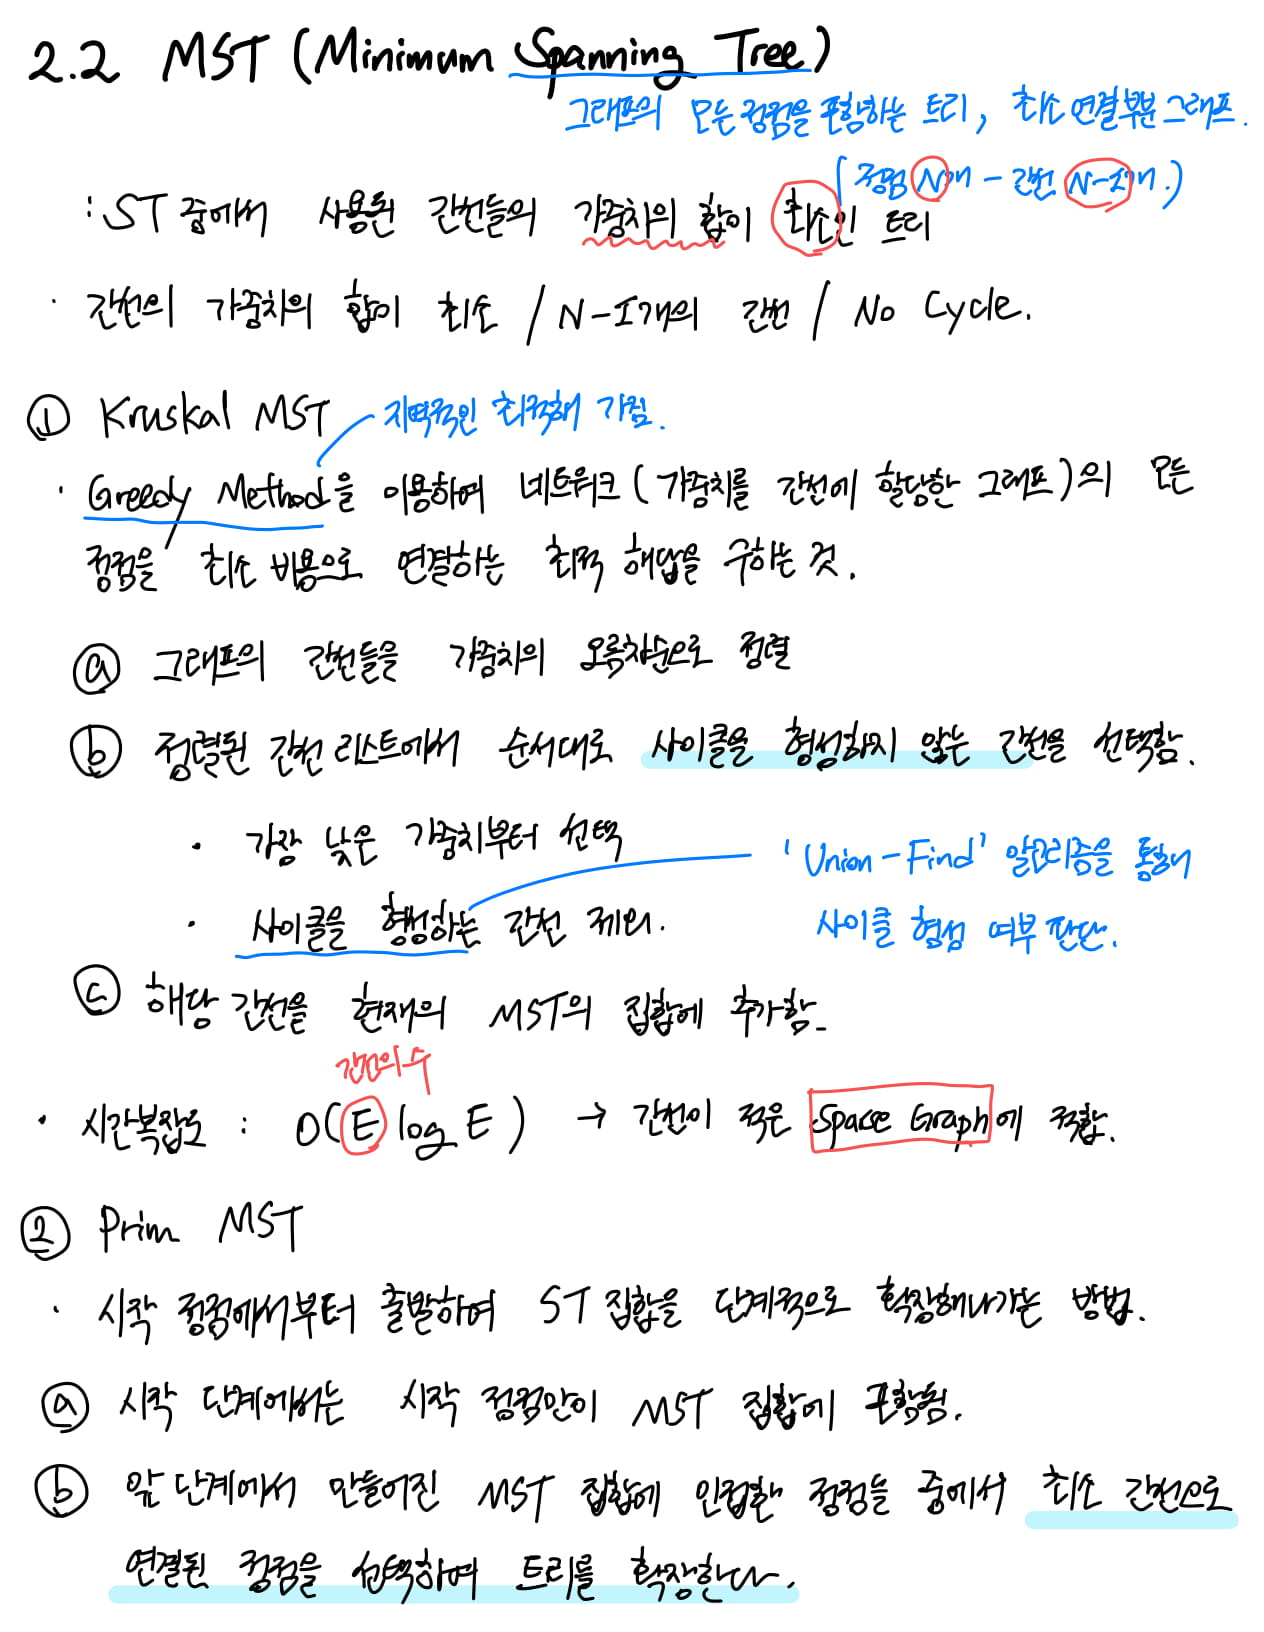 2.2 MST (Minimum Spanning Tree)
그래프의 모든 정점을 포함하는 트리, 최소 연결 부분 그래프.
(정점 N개 - 간선 N-1개.)
: ST 중에서 사용된 간선들의 가중치의 합이 최소인 트리
· 간선의 가중치의 합이 최소 / N-1개의 간선 / No Cycle.
① Kruskal MST
지역적인 최적해 가짐.
· Greedy Method을 이용하여 네트워크(가중치를 간선에 할당한 그래프)의 모든
정점을 최소 비용으로 연결하는 최적 해답을 구하는 것.
ⓐ 그래프의 간선들을 가중치의 오름차순으로 정렬
ⓑ 정렬된 간선 리스트에서 순서대로 사이클을 형성하지 않는 간선을 선택함.
· 가장 낮은 가중치부터 선택
'Union-Find' 알고리즘을 통해
· 사이클을 형성하는 간선 제외.
사이클 형성 여부 판단.
ⓒ 해당 간선을 현재의 MST의 집합에 추가함.
간선의 수
· 시간복잡도 : O(E log E) → 간선이 적은 Space Graph에 적합.
② Prim MST
· 시작 정점에서부터 출발하여 ST 집합을 단계적으로 확장해나가는 방법.
ⓐ 시작 단계에서는 시작 정점만이 MST 집합에 포함됨.
ⓑ 앞 단계에서 만들어진 MST 집합에 인접한 정점들 중에서 최소 간선으로
연결된 정점을 선택하여 트리를 확장한다.